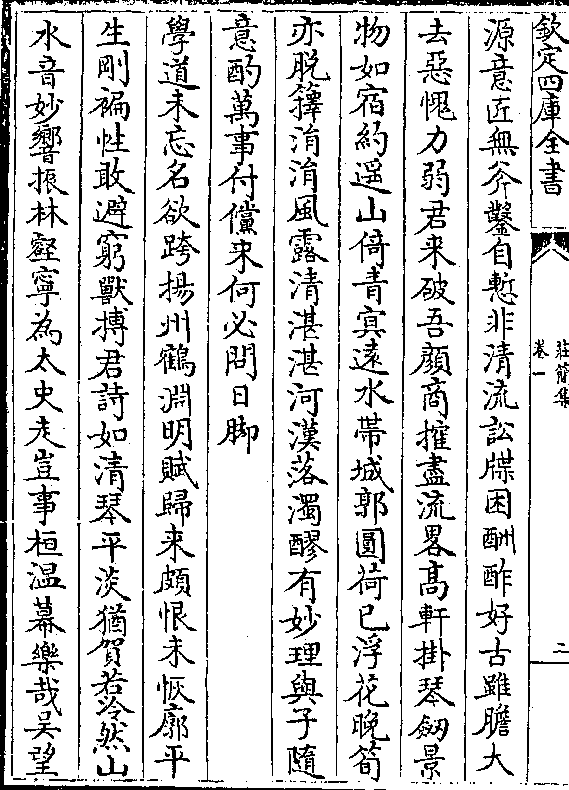 欽定四庫全書
莊簡集
卷一
二
源意匠無斧鑿自慙非清流訟牒困酬酢好古雖膽大
去惡愧力弱君來破吾顔商搉盡流畧高軒掛琴劒景
物如宿約遥山倚青㝠逺水帶城郭圓荷已浮花晚筍
亦脱籜涓涓風露清湛湛河漢落濁醪有妙理與子隨
意酌萬事付儻来何必問日脚
學道未忘名欲跨揚州鶴淵明賦歸来頗恨未恢廓平
生剛褊性敢避窮獸搏君詩如清琴平淡猶賀若泠然山
水音妙響振林壑寧為太史走豈事桓温幕樂哉吴望